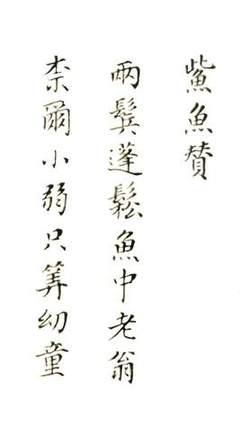 鮆魚賛
兩鬓蓬鬆魚中老翁
柰爾小弱只筭幼童